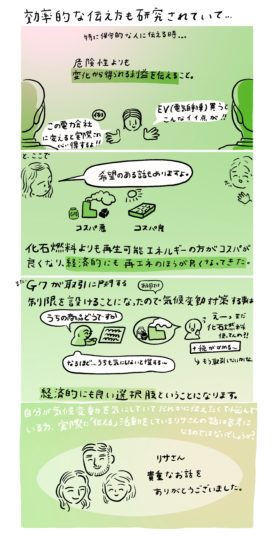 効率的な伝え方も研究されていて…
特に保守的な人に伝える時…
危険性よりも
変化から得られる利益を伝えること。
この電力会社
に変えると実際これ
くらい得するよ!!
EV(電気自動車)買うと
こんなイイ点が!!
と、ここで
希望のある話もありますよ。
コスパ悪
コスパ良
化石燃料よりも再生可能エネルギーの方がコスパが
良くなり、経済的にも再エネのほうが良くなってきた。
G7が取引に関する
制限を設けることになったので気候変動対策する事は
うちの商品どうですか
えーっまだ
化石燃料
なるほど…うちも気にしないと損する…
経済的にも良い選択肢ということになります。
自分が気候変動を気にしていてだれかに伝えたくて悩んで
いる方、実際に「伝える」活動をしているリサさんの話は参考に
なるのではないでしょうか?
リサさん
貴重なお話を
ありがとうございました。